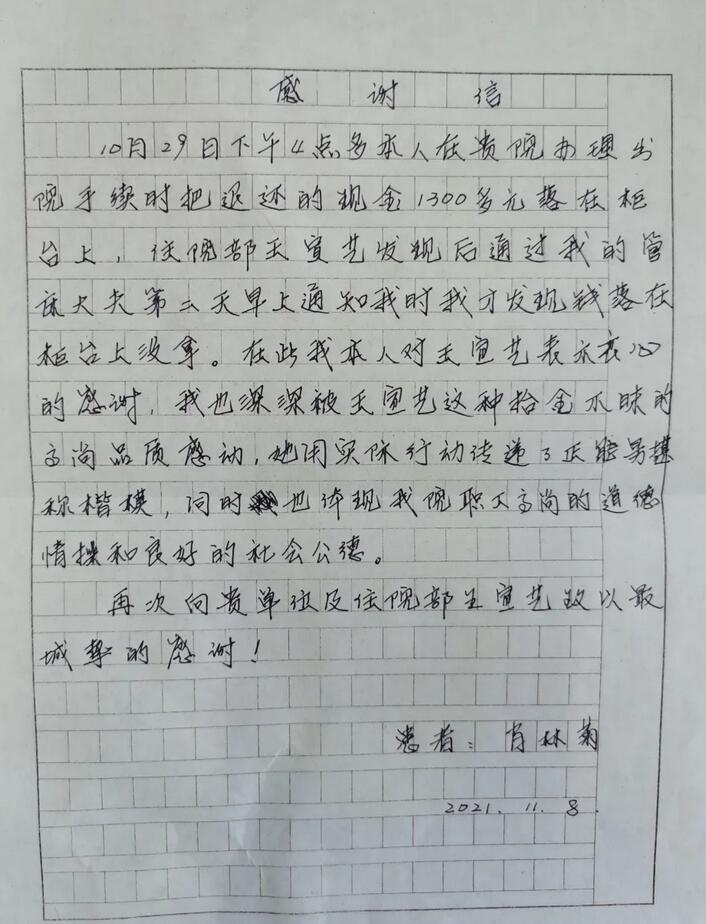 感谢信
10月29日下午4点多本人在贵院办理出
院手续时把退还的现金1300多元落在柜
台上，住院部王宣艺发现后通过我的管
床大夫第二天早上通知我时我才发现钱落在
柜台上没拿。在此我本人对王宣艺表示衷心
的感谢，我也深深被王宣艺这种拾金不昧的
高尚品质感动，她用实际行动传递了正能 堪
称楷模，同时也体现我院职工高尚的道德
情操和良好的社会公德。
再次向贵单位及住院部王宣艺致以最
城挚的感谢！
患者：肖林菊
2021.11.8.